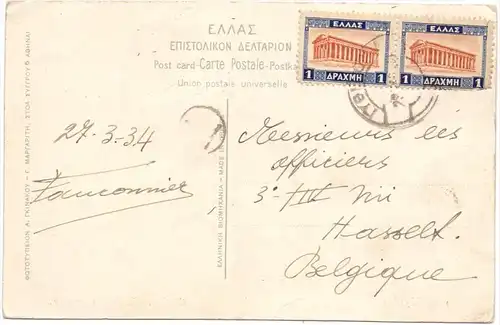 ΕΛΛΑΣ
ΕΠΙΣΤΟΛΙΚΟΝ ΔΕΛΤΑΡΙΟΝ
Post card-Carte Postale-Postka
Union postale universelle
ΕΛΛΑΣ
1 ΔΡΑΧΜΗ 1
ΕΛΛΑΣ
1 ΔΡΑΧΜΗ 1
27-3-34
Fauconnier
Messieurs les
officiers
3e
Hasselt.
Belgique
ΕΛΛΗΝΙΚΗ ΒΙΟΜΗΧΑΝΙΑ - MADE